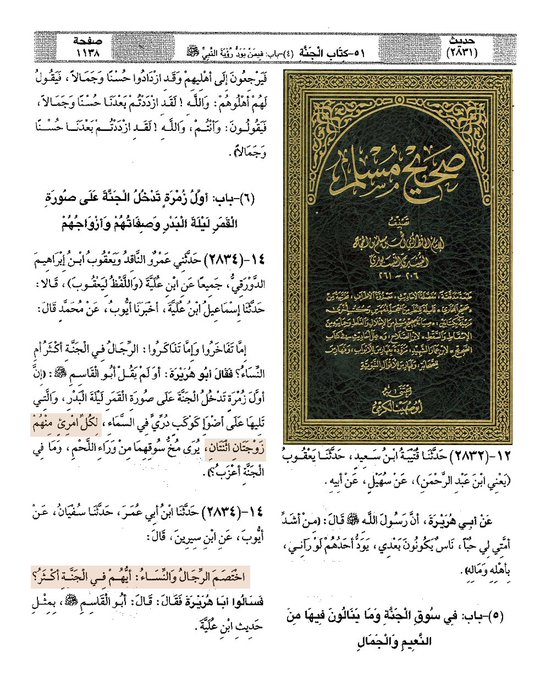 حديث
(٢٨٣١)
٥١-كتاب الجنة (٤)-باب: فيمن يود رؤية النبي ﷺ
صفحة
١١٣٨
صحيح مسلم
تصنيف
٢٠٦ - ٢٦١
١٢-(٢٨٣٢) حَدَّثَنَا قُتَيْبَةُ ابْنُ سَعِيدٍ، حَدَّثَنَا يَعْقُوبُ
(يَعْنِي ابْنَ عَبْدِ الرَّحْمَنِ)، عَنْ سُهَيْلٍ، عَنْ أَبِيهِ.
عَنْ أَبِي هُرَيْرَةَ، أَنَّ رَسُولَ اللَّهِ ﷺ قَالَ: (مِنْ أَشَدِّ
أُمَّتِي لِي حُبًّا، نَاسٌ يَكُونُونَ بَعْدِي، يَوَدُّ أَحَدُهُمْ لَوْ رَآنِي،
بِأَهْلِهِ وَمَالِهِ).
(٥)-باب: فِي سُوقِ الْجَنَّةِ وَمَا يَنَالُونَ فِيهَا مِنَ
النَّعِيمِ وَالْجَمَالِ
فَيَرْجِعُونَ إِلَى أَهْلِيهِمْ وَقَدِ ازْدَادُوا حُسْنًا وَجَمَالاً، فَيَقُولُ
لَهُمْ أَهْلُوهُمْ: وَاللَّهِ! لَقَدِ ازْدَدْتُمْ بَعْدَنَا حُسْنًا وَجَمَالاً،
فَيَقُولُونَ: وَأَنْتُمْ، وَاللَّهِ! لَقَدِ ازْدَدْتُمْ بَعْدَنَا حُسْنًا
وَجَمَالاً).
(٦)-باب: أَوَّلُ زُمْرَةٍ تَدْخُلُ الْجَنَّةَ عَلَى صُورَةِ
الْقَمَرِ لَيْلَةَ الْبَدْرِ وَصِفَاتُهُمْ وَأَزْوَاجُهُمْ
١٤-(٢٨٣٤) حَدَّثَنِي عَمْرٌو النَّاقِدُ وَيَعْقُوبُ ابْنُ إِبْرَاهِيمَ
الدَّوْرَقِيُّ، جَمِيعًا عَنِ ابْنِ عُلَيَّةَ (وَاللَّفْظُ لِيَعْقُوبَ)، قَالا:
حَدَّثَنَا إِسْمَاعِيلُ ابْنُ عُلَيَّةَ، أَخْبَرَنَا أَيُّوبُ، عَنْ مُحَمَّدٍ قَالَ:
إِمَّا تَفَاخَرُوا وَإِمَّا تَذَاكَرُوا: الرِّجَالُ فِي الْجَنَّةِ أَكْثَرُ أَمِ
النِّسَاءُ؟ فَقَالَ أَبُو هُرَيْرَةَ: أَوَ لَمْ يَقُلْ أَبُو الْقَاسِمِ ﷺ: (إِنَّ
أَوَّلَ زُمْرَةٍ تَدْخُلُ الْجَنَّةَ عَلَى صُورَةِ الْقَمَرِ لَيْلَةَ الْبَدْرِ، وَالَّتِي
تَلِيهَا عَلَى أَضْوَإِ كَوْكَبٍ دُرِّيٍّ فِي السَّمَاءِ، لِكُلِّ امْرِئٍ مِنْهُمْ
زَوْجَتَانِ اثْنَتَانِ، يُرَى مُخُّ سُوقِهِمَا مِنْ وَرَاءِ اللَّحْمِ، وَمَا فِي
الْجَنَّةِ أَعْزَبُ؟).
١٤-(٢٨٣٤) حَدَّثَنَا ابْنُ أَبِي عُمَرَ، حَدَّثَنَا سُفْيَانُ، عَنْ
أَيُّوبَ، عَنِ ابْنِ سِيرِينَ، قَالَ:
اخْتَصَمَ الرِّجَالُ وَالنِّسَاءُ: أَيُّهُمْ فِي الْجَنَّةِ أَكْثَرُ؟
فَسَأَلُوا أَبَا هُرَيْرَةَ فَقَالَ: قَالَ: أَبُو الْقَاسِمِ ﷺ، بِمِثْلِ
حَدِيثِ ابْنِ عُلَيَّةَ.